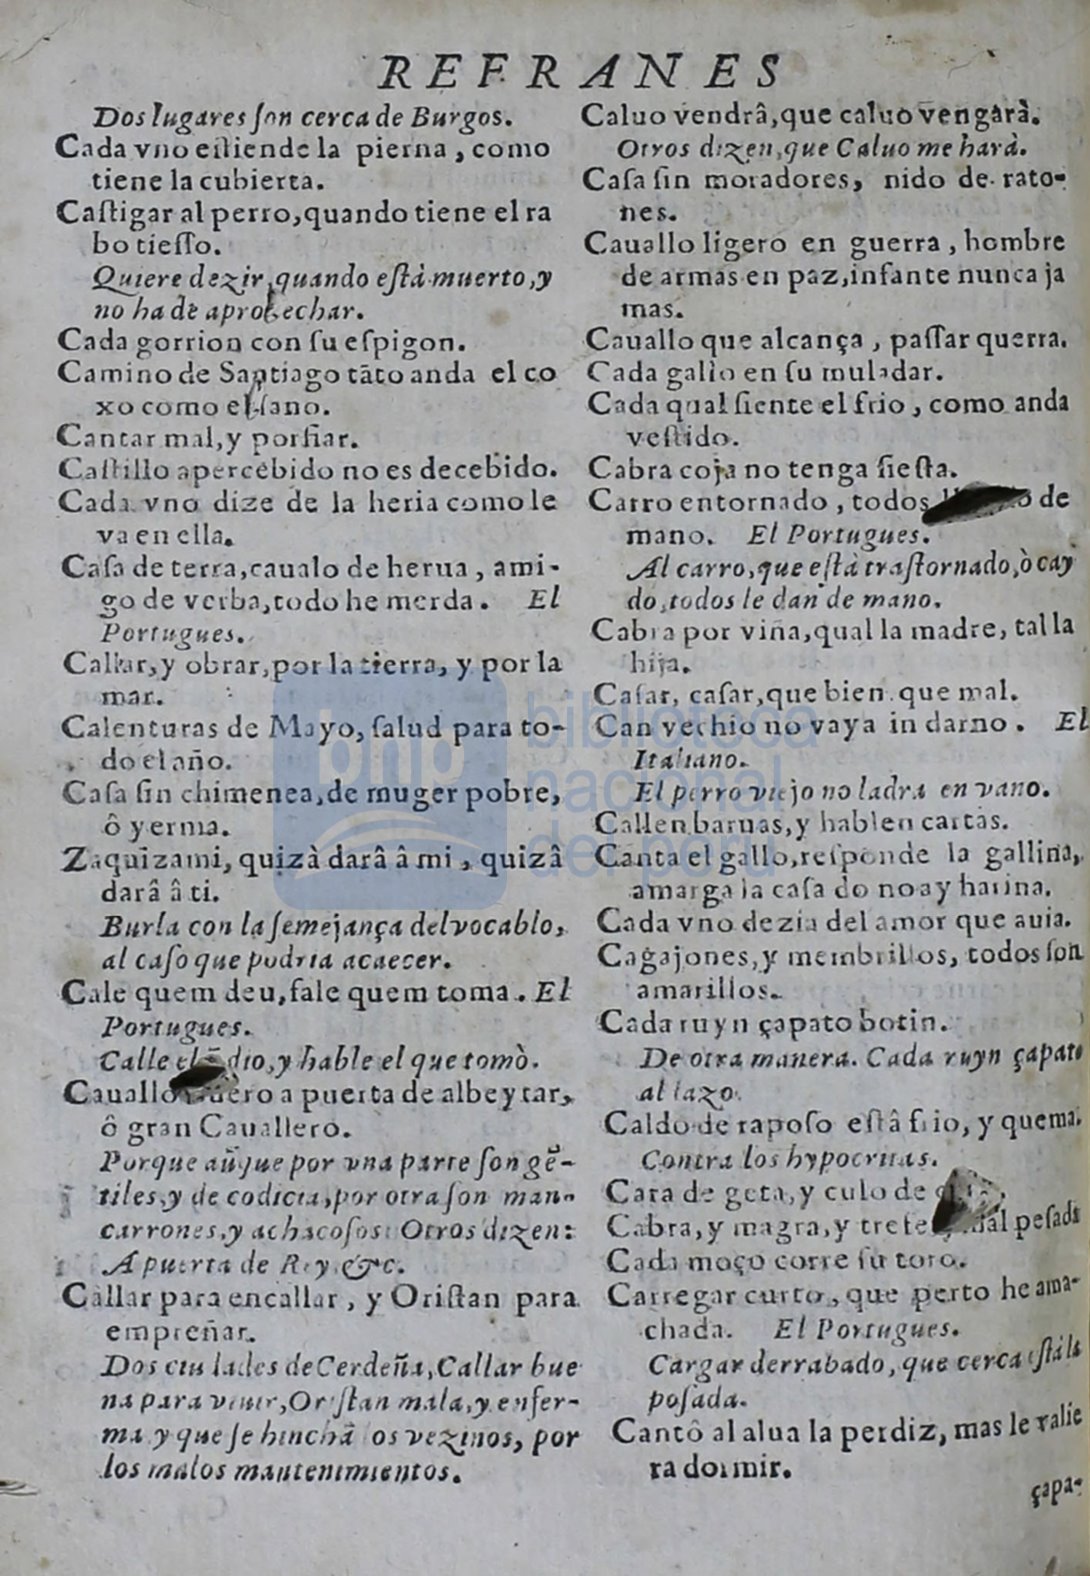 REFRANES
Dos lugares son cerca de Burgos.
Cada vno estiende la pierna, como
tiene la cubierta.
Castigar al perro, quando tiene el ra
bo tiesso.
Quiere dezir, quando està muerto, y
no ha de aprouechar.
Cada gorrion con su espigon.
Camino de Santiago tãto anda el co
xo como el sano.
Cantar mal, y porfiar.
Castillo apercebido no es decebido.
Cada vno dize de la heria como le
va en ella.
Casa de terra, caualo de herua, ami-
go de verba, todo he merda. El
Portugues.
Callar, y obrar, por la tierra, y por la
mar.
Calenturas de Mayo, salud para to-
do el año.
Casa sin chimenea, de muger pobre,
ô yerma.
Zaquizami, quizà darâ â mi, quizâ
darâ â ti.
Burla con la semejança del vocablo,
al caso que podria acaecer.
Cale quem deu, fale quem toma. El
Portugues.
Calle el dio, y hable el que tomò.
Cauallo a puerta de albeytar,
ô gran Cauallero.
Porque aũque por vna parte son gẽ-
tiles, y de codicia, por otra son man-
carrones, y achacosos: Otros dizen:
A puerta de Rey &c.
Callar para encallar, y Oristan para
empreñar.
Dos ciudades de Cerdeña, Callar bue
na para viuir, Oristan mala, y enfer-
ma y que se hinchã los vezinos, por
los malos mantenimientos.
Caluo vendrâ, que caluo vengarà.
Otros dizen, que Caluo me harà.
Casa sin moradores, nido de rato-
nes.
Cauallo ligero en guerra, hombre
de armas en paz, infante nunca ja
mas.
Cauallo que alcança, passar querra.
Cada gallo en su muladar.
Cada qual siente el frio, como anda
vestido.
Cabra coja no tenga siesta.
Carro entornado, todos de
mano. El Portugues.
Al carro, que està trastornado, ò cay
do, todos le dan de mano.
Cabra por viña, qual la madre, tal la
hija.
Casar, casar, que bien que mal.
Can vechio no vaya in darno. El
Italiano.
El perro viejo no ladra en vano.
Callen baruas, y hablen cartas.
Canta el gallo, responde la gallina,
amarga la casa do no ay harina.
Cada vno dezia del amor que auia.
Cagajones, y membrillos, todos son
amarillos.
Cada ruyn çapato botin.
De otra manera. Cada ruyn çapato
al lazo.
Caldo de raposo estâ frio, y quema.
Contra los hypocritas.
Cara de geta, y culo de
Cabra, y magra, y trete mal pesada
Cada moço corre su toro.
Carregar curto, que perto he ama-
chada. El Portugues.
Cargar derrabado, que cerca està la
posada.
Cantô al alua la perdiz, mas le valie
ra dormir.
çapa-